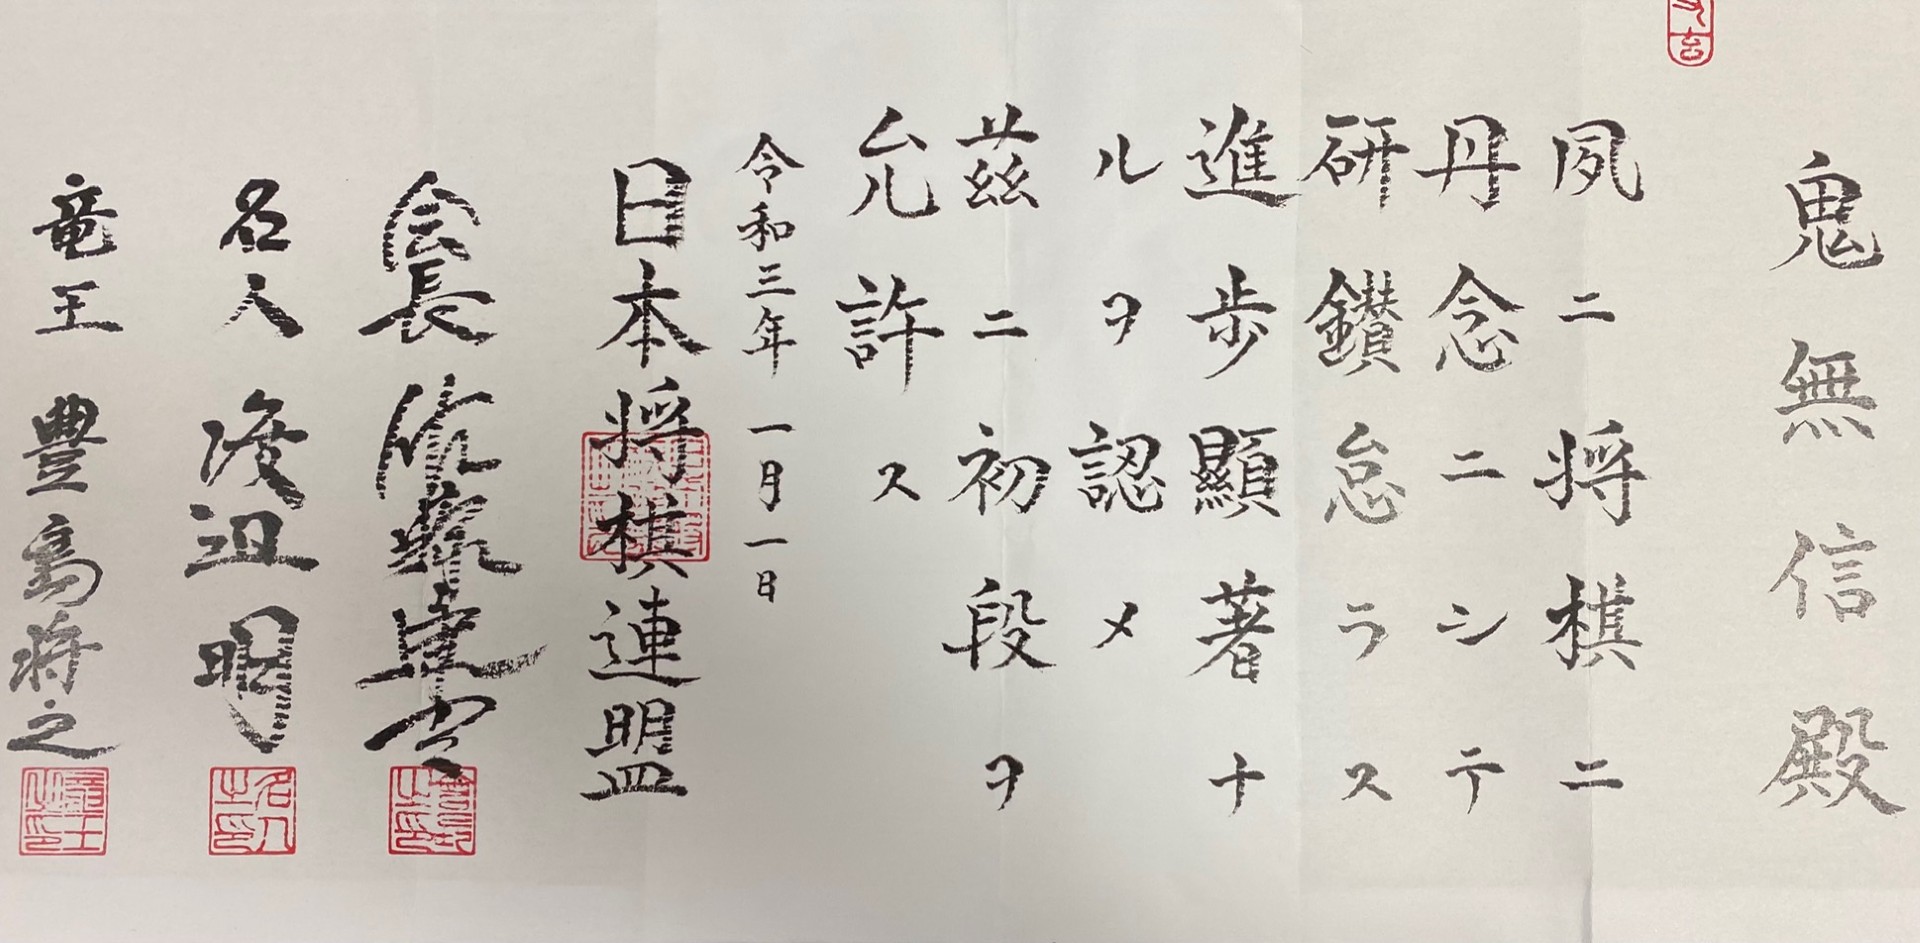 鬼無信殿
夙ニ将棋ニ
丹念ニシテ
研鑽怠ラス
進歩顯著ナ
ルヲ認メ
茲ニ初段ヲ
允許ス
令和三年一月一日
日本将棋連盟
会長 佐藤康光
名人 渡辺明
竜王 豊島将之